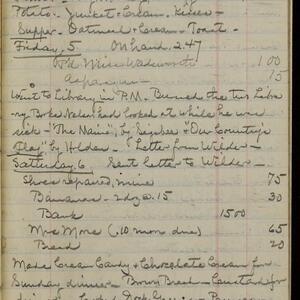 Potato - Junket + Cream -
Supper - Oatmeal + Cream - Toast -
Friday, 5 On hand 2.47
Pd Miss Wadsworth 1 00
15
Went to Library in P.M. Burned the two Libra-
ry Books Helen had looked at while he was
sick - "The Maine", by Sigsbee "Our Country's
Flag", by Holden - Letter from Wilder -
Saturday 6 Sent letter to Wilder -
Shoes repaired, mine 75
Bananas - 2 dz @ .15 30
Bank 15 00
Mrs More (.10 more due) 65
Bread 20
Made Cream Candy + Chocolate Cream for
Sunday dinner - Brown Bread - Custard for